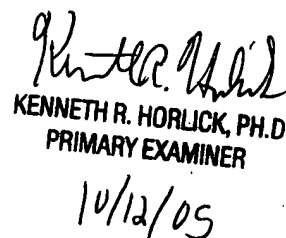 Kenneth R. Horlick
KENNETH R. HORLICK, PH.D
PRIMARY EXAMINER
10/12/05